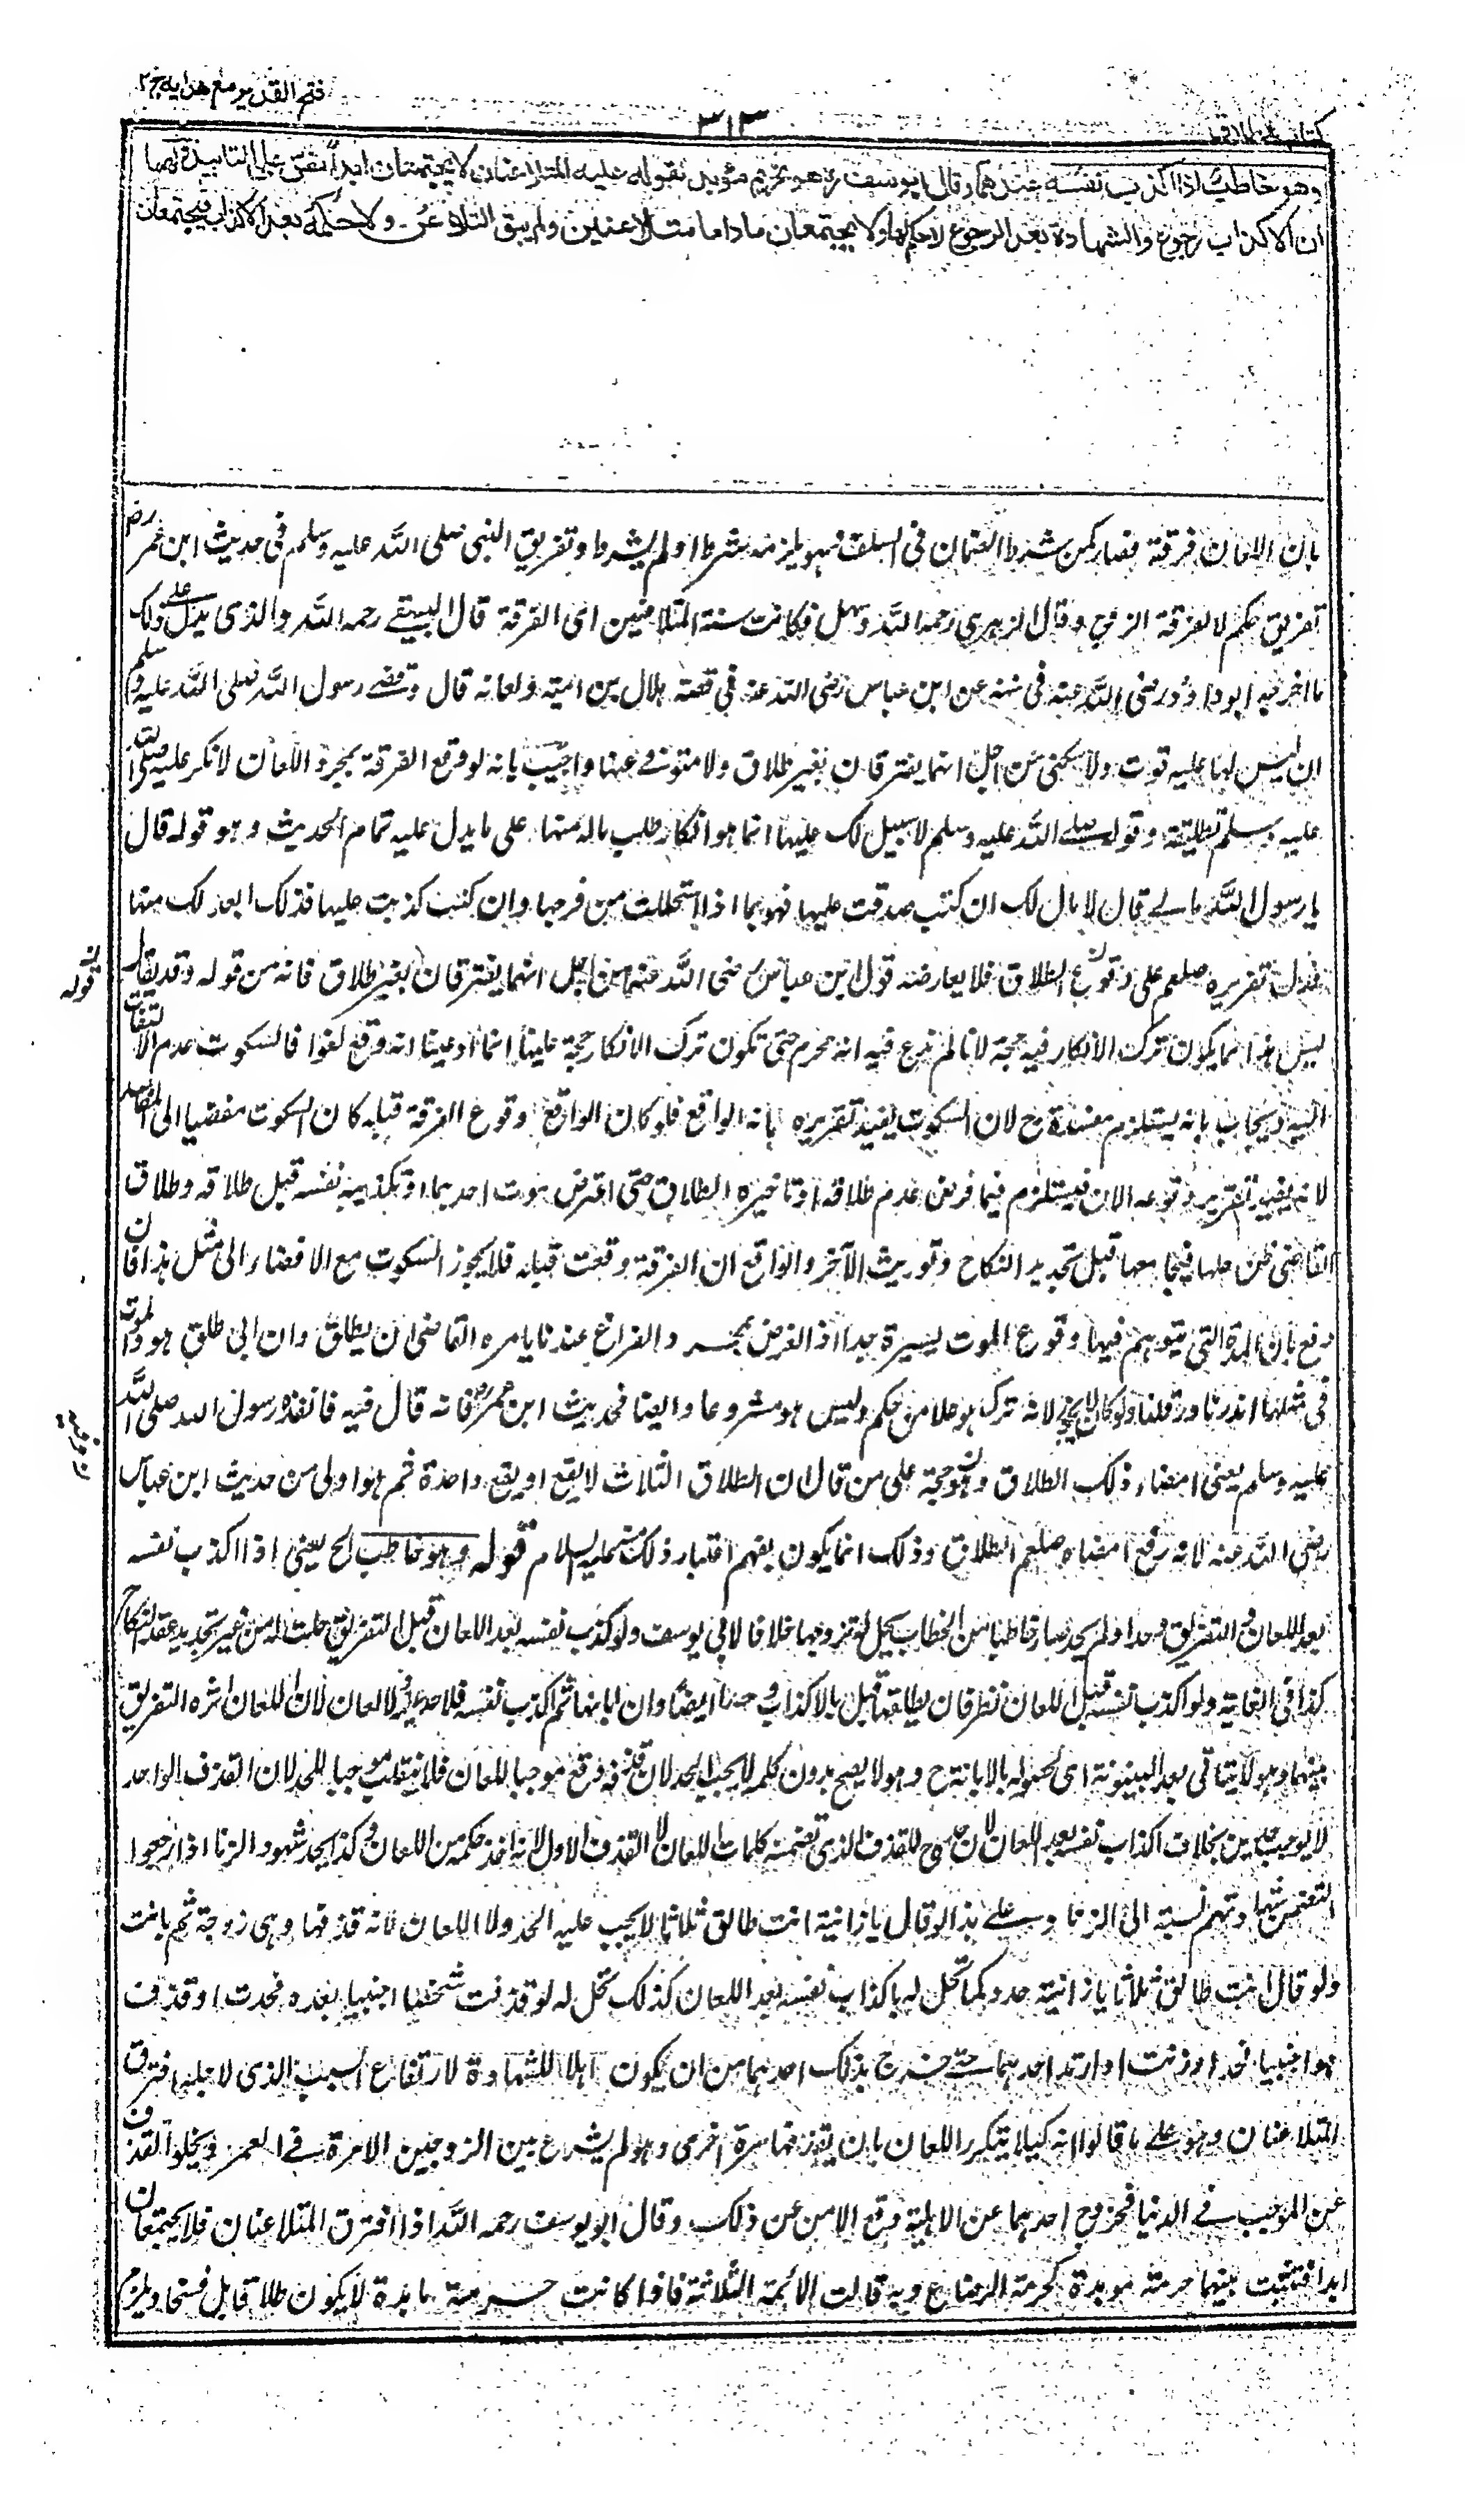 فتح القدير مع هدايه ج ٢
٣١٣
كتاب الطلاق
وهو خاطب اذا اكذب نفسه عندهما وقال ابو يوسف ره هو تحريم مؤبد لقوله عليه المتلاعنان لا يجتمعان ابدا نص على التابيد ولهما
ان الاكذاب رجوع والشهادة بعد الرجوع لا حكم لها ولا يجتمعان ماداما متلاعنين ولم يبق التلاعن ولا حكمه بعد الاكذاب فيجتمعان
بان اللعان فرقة فصار كمن شرط الضمان فى السلف فهو يلزمه شرط او لم يشرط وتفريق النبى صلى الله عليه وسلم فى حديث ابن عمر رض
تفريق حكم لا لفرقة الزوج وقال الزهري رحمه الله وسهل فكانت سنة المتلاعنين اى الفرقة قال البيهقے رحمه الله والذى يدل على ذلك
ما اخرجه ابو داؤد رضى الله عنه فى سننه عن ابن عباس رضى الله عنه فى قصة هلال بن امية ولعانه قال وقضے رسول الله صلى الله عليه وسلم
ان ليس لها عليه قوت ولا سكنى من اجل انهما يفترقان بغير طلاق ولا متوفے عنها واجيب بانه لو وقع الفرقة بمجرد اللعان لانكر عليه صلى الله
عليه وسلم تطليقه وقوله صلے الله عليه وسلم لا سبيل لك عليها انما هو انكار طلب ماله منها على ما يدل عليه تمام الحديث وهو قوله قال
يا رسول الله مالے قال لا مال لك ان كنت صدقت عليها فهو بما استحللت من فرجها وان كنت كذبت عليها فذلك ابعد لك منها
فدل تقريره صلعم على وقوع الطلاق فلا يعارضه قول ابن عباس رضى الله عنهما من اجل انهما يفترقان بغير طلاق فانه من قوله وقد يقال
ليس هذا مما يكون ترك الانكار فيه حجة لانا لم ندع فيه انه محرم حتى تكون ترك الانكار حجة علينا انما ادعينا انه وقع لغوا فالسكوت عدم الالتفات
اليه ويجاب بانه يستلزم مفسدة ح لان السكوت يفيد تقريره بانه الواقع فلو كان الواقع وقوع الفرقة قبله كان السكوت مفضيا الى المفسد
لانه يفيد تقرير وقوعه الان فيستلزم فيما فرض عدم طلاقه او تاخيره الطلاق حتى اعترض موت احدهما او تكذيبه نفسه قبل طلاقه وطلاق
القاضى ظن حلها فيجامعها قبل تجديد النكاح وتوريث الآخر والواقع ان الفرقة وقعت قبله فلا يجوز السكوت مع الافضاء الى مثل هذا فان
دفع بان المدة التى يتوهم فيها وقوع الموت يسيرة جدا اذ الفرض بمجرد الفراغ عندنا يامره القاضى ان يطلق وان ابى طلق هو والموت
فى مثلها اندر نادر قلنا ولو كان لا يجوز لانه ترك هو خلا من حكم وليس هو مشروعا وايضا فحديث ابن عمر رض فانه قال فيه فانفذه رسول الله صلى الله
عليه وسلم يعنى امضاء ذلك الطلاق وهو حجة على من قال ان الطلاق الثلاث لا يقع او يقع واحدة ثم هو اولى من حديث ابن عباس
رضى الله عنه لانه رفع امضاه صلعم الطلاق وذلك انما يكون بفهم اعتبار ذلك منه عليه السلام قوله وهو خاطب الخ يعنى اذا اكذب نفسه
بعد اللعان والتفريق وحد او لم يحد صار خاطبا من الخطاب يحل له تزوجها خلافا لابى يوسف ولو كذب نفسه بعد اللعان قبل التفريق حلت له من غير تجديد عقد النكاح
كذا فى الغاية ولو اكذب نفسه قبل اللعان نظر فان لم يطلقها قبل الاكذاب وحد ايضا وان ابانها ثم اكذب نفسه فلا حد ولا لعان لان اللعان اثره التفريق
بينهما وهو لا يتاتى بعد البينونة اى لحصوله بالابانة ح وهو لا يصح بدون حكمه لا يجب الحد لان قذفه وقع موجبا للعان فلا ينقلب موجبا للحد لان القذف الواحد
لا يوجب حدين بخلاف اكذاب نفسه بعد اللعان لان حد ح للقذف الذى تضمنه كلمات اللعان لا القذف الاول لانه اخذ حكمه من اللعان وكذا يحد شهود الزنا اذا رجعوا
لتضمن شهادتهم نسبته الى الزنا وعلے هذا لو قال يا زانية انت طالق ثلاثا لا يجب عليه الحد ولا اللعان لانه قذفها وهى زوجة ثم بانت
ولو قال انت طالق ثلاثا يا زانية حد وكما تحل له باكذاب نفسه بعد اللعان كذلك تحل له لو قذفت شخصا اجنبيا بعده فحدت او قذف
هو اجنبيا فحد او زنت او ارتد احدهما حتے خرج بذلك احدهما من ان يكون اهلا للشهادة لارتفاع السبب الذى لاجله افترق
المتلاعنان وهو علے ما قالوا انه كيلا يتكرر اللعان بان يقذفها مرة اخرى وهو لم يشرع بين الزوجين الا مرة فے العمر ويخلو القذف
عن الموجب فے الدنيا فبخروج احدهما عن الاهلية وقع الامن عن ذلك وقال ابو يوسف رحمه الله اذا افترق المتلاعنان فلا يجتمعان
ابدا فتثبت بينهما حرمة موبدة كحرمة الرضاع وبه قالت الائمة الثلاثة فاذا كانت حرمة مابدة لا يكون طلاقا بل فسخا ويلزم